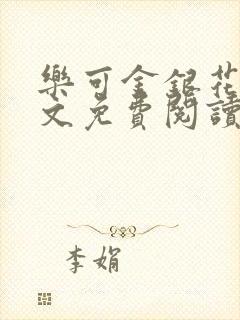 樂可金銀花
文免費閱讀
李娟